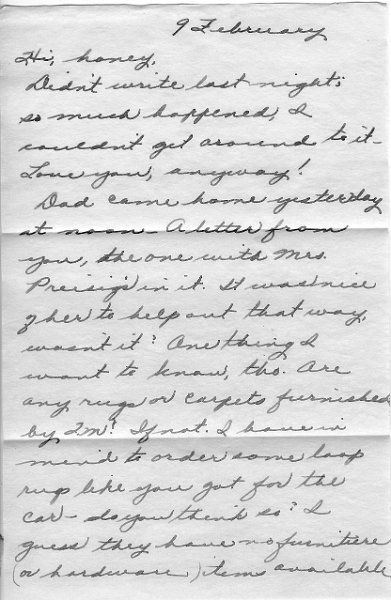 9 February
Hi, honey,
Didn't write last night;
so much happened, I
couldn't get around to it -
Love you, anyway!
Dad came home yesterday
at noon - A letter from
you, the one with Mrs.
Preisig's in it. It was nice
of her to help out that way,
wasn't it? One thing I
want to know, tho. Are
any rugs or carpets furnished
by ? If not. I have in
mind to order some loop
rug like you got for the
car - do you think so? I
guess they have no furniture
(or hardware) items available